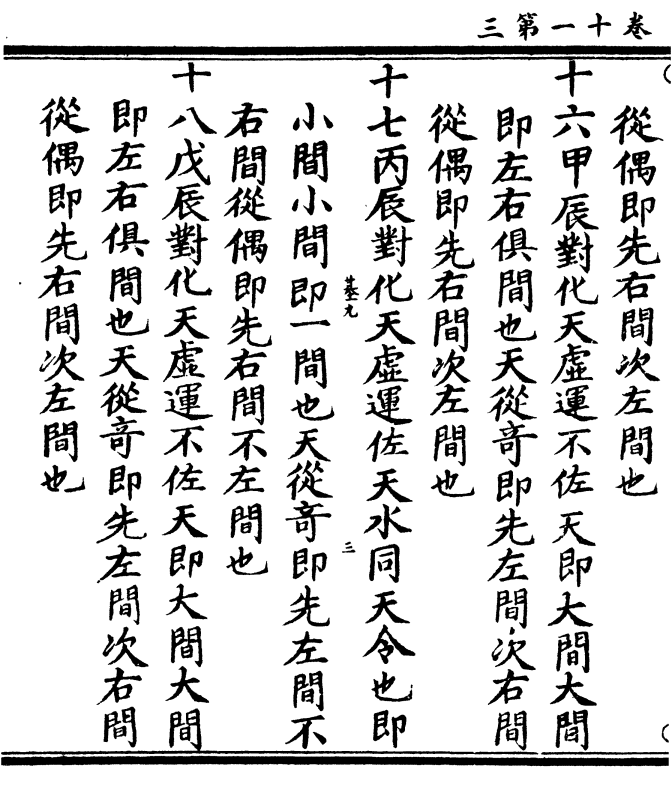 卷十一第三
從偶即先右間次左間也
十六甲辰對化天虛運不佐天即大間大間
即左右俱間也天從竒即先左間次右間
從偶即先右間次左間也
十七丙辰對化天虛運佐天水同天令也即
基九
三
小間小間即一間也天從竒即先左間不
右間從偶即先右間不左間也
十八戊辰對化天虛運不佐天即大間大間
即左右俱間也天從竒即先左間次右間
從偶即先右間次左間也